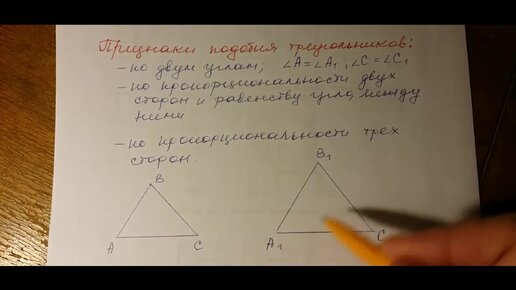 Признаки подобия треугольников:
- по двум углам; ∠A=∠A₁; ∠C=∠C₁
- по пропорциональности двух
сторон и равенству угла между
ними
- по пропорциональности трех
сторон.
B
A
C
B₁
A₁
C